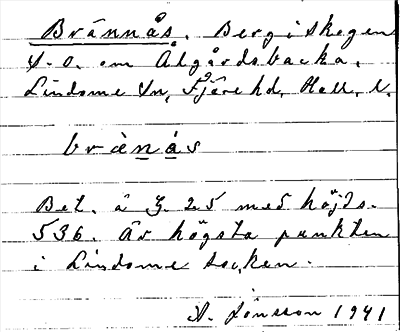 Brännås. Berg i skogen
S.O. om Ålgårdsbacka,
Lindome Sn, Fjäre hd, Hall. l.
bränås
Bet. å G. 25 med höjds.
536. Är högsta punkten
i Lindome socken.
A. Jönsson 1941